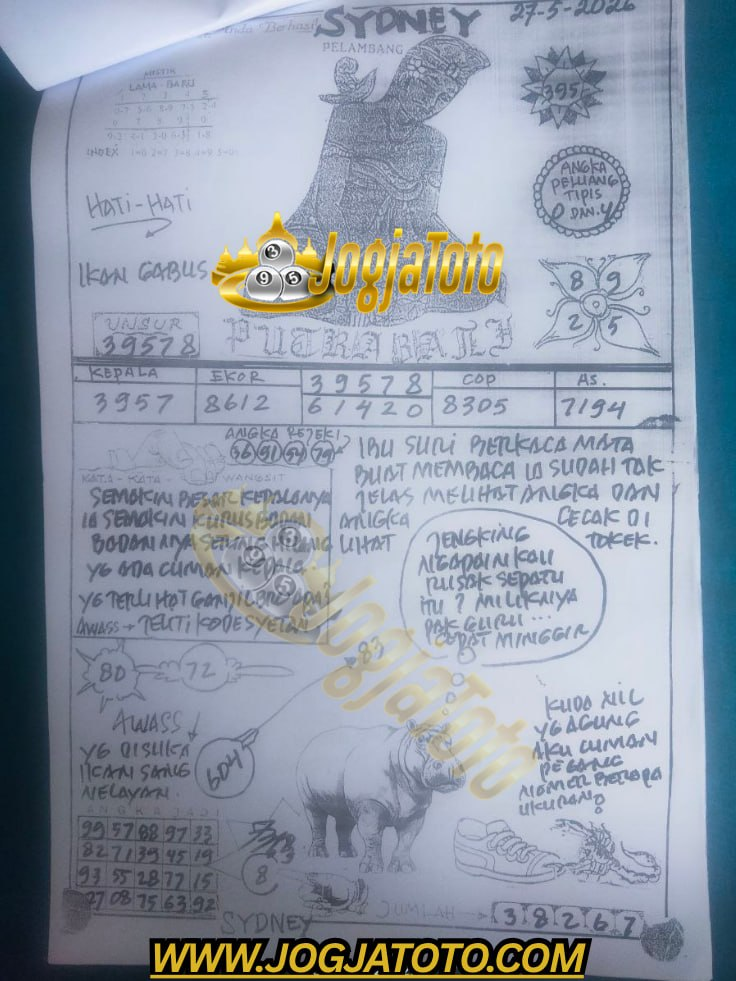 SYDNEY
27-5-2026
PELAMBANG
MISTIK
LAMA - BARU
INDEX
395
ANGKA
PELUANG
TIPIS
0 DAN 4
HATI-HATI
IKAN GABUS
3
9 5
JogjaToto
8 9
2 5
UNSUR
39578
PUTRA BALI
KEPALA
EKOR
39578
COP
AS.
3957
8612
61420
8305
7194
ANGKA REJEKI
36 91 54 79
KATA - KATA WANGSIT
IBU SURI BERKACA MATA
BUAT MEMBACA IA SUDAH TAK
JELAS MELIHAT ANGKA DAN
ANGKA CECAK DI
LIHAT TOKEK.
SEMAKIN BESAR KEPALANYA
IA SEMAKIN KURUS BADAN
YG ADA CUMAN KEPALA
AWASS → TELITI KODE SYETAN
JENGKING
NGAPAIN KAU
RUSAK SEPATU
ITU ? MILIKNYA
PAK GURU ...
CEPAT MINGGIR
JogjaToto
83
80
72
AWASS
YG DISUKA
IKAN SANG
NELAYAN.
604
KUDA NIL
YG AGUNG
AKU CUMAN
PEGANG
NOMER BERAPA
UKURAN?
ANGKA JADI
99 57 88 97 33
82 71 39 45 19
93 55 28 77 15
27 08 75 63 92
8
SYDNEY
JUMLAH → 3 8 2 6 7
WWW.JOGJATOTO.COM